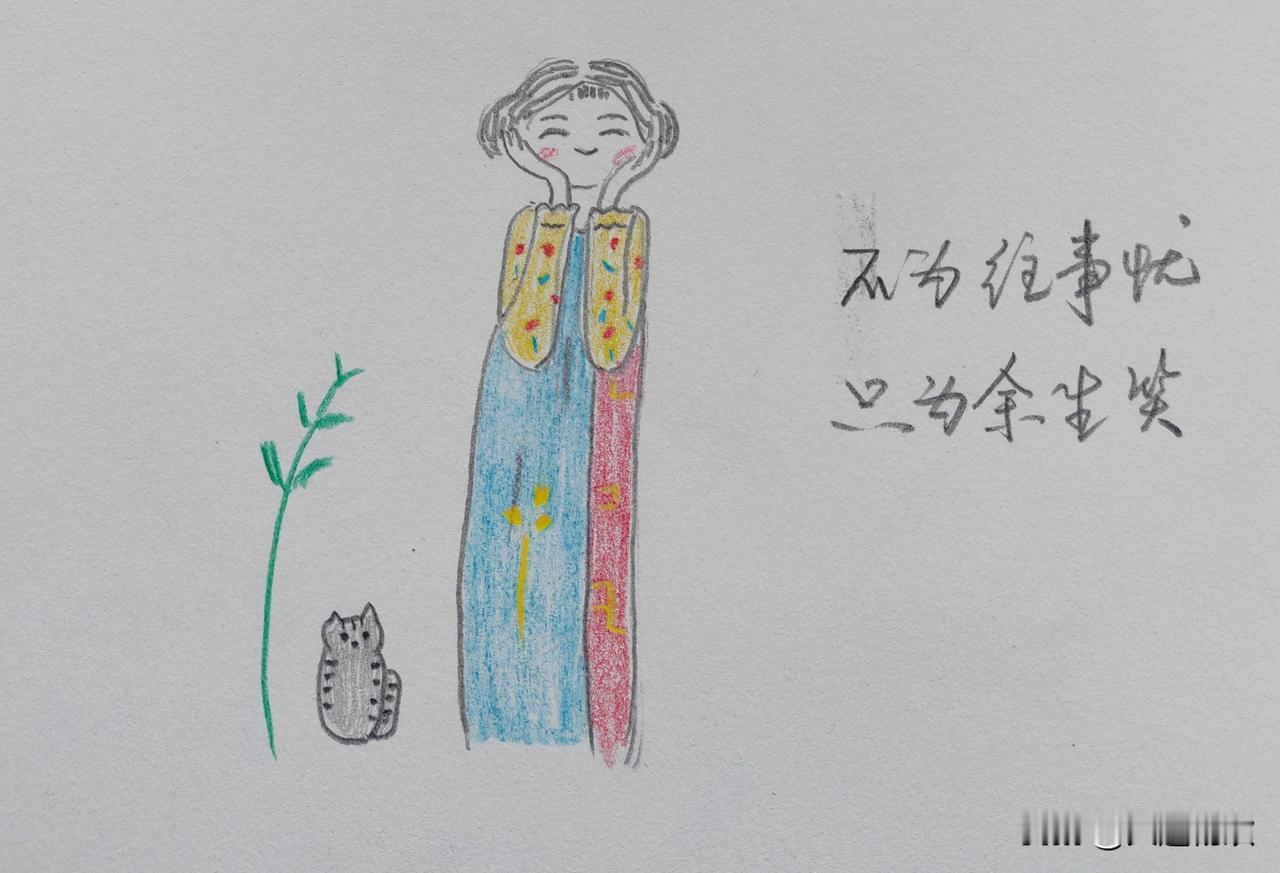 不为往事忧
只为余生笑